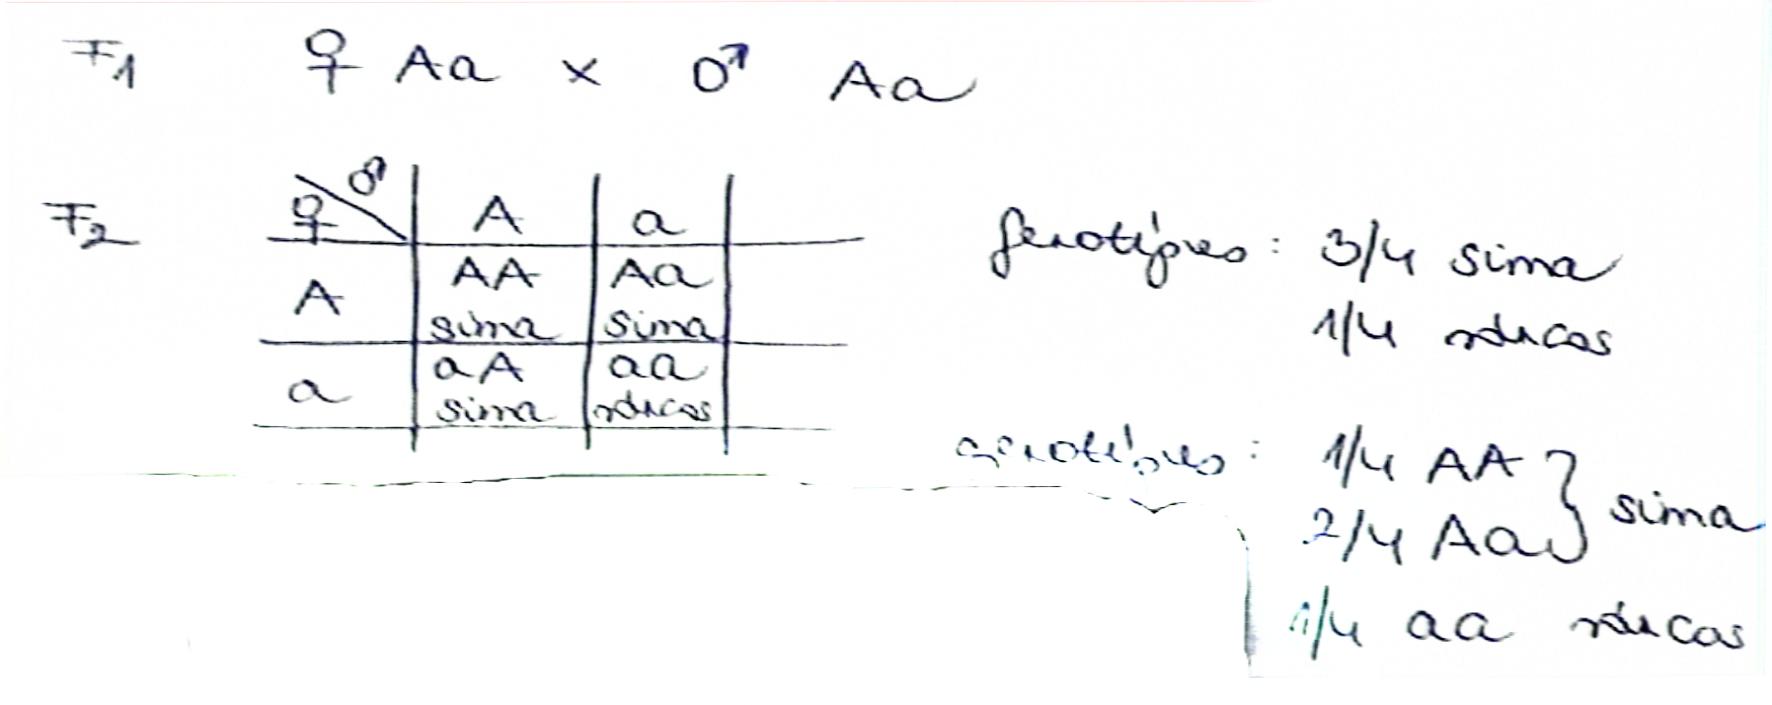 F1 ♀ Aa x ♂ Aa
F2
♀ \ ♂ | A | a
A | AA sima | Aa sima
a | aA sima | aa ráncos
fenotípus: 3/4 sima
1/4 ráncos
genotípus: 1/4 AA } sima
2/4 Aa
1/4 aa ráncos